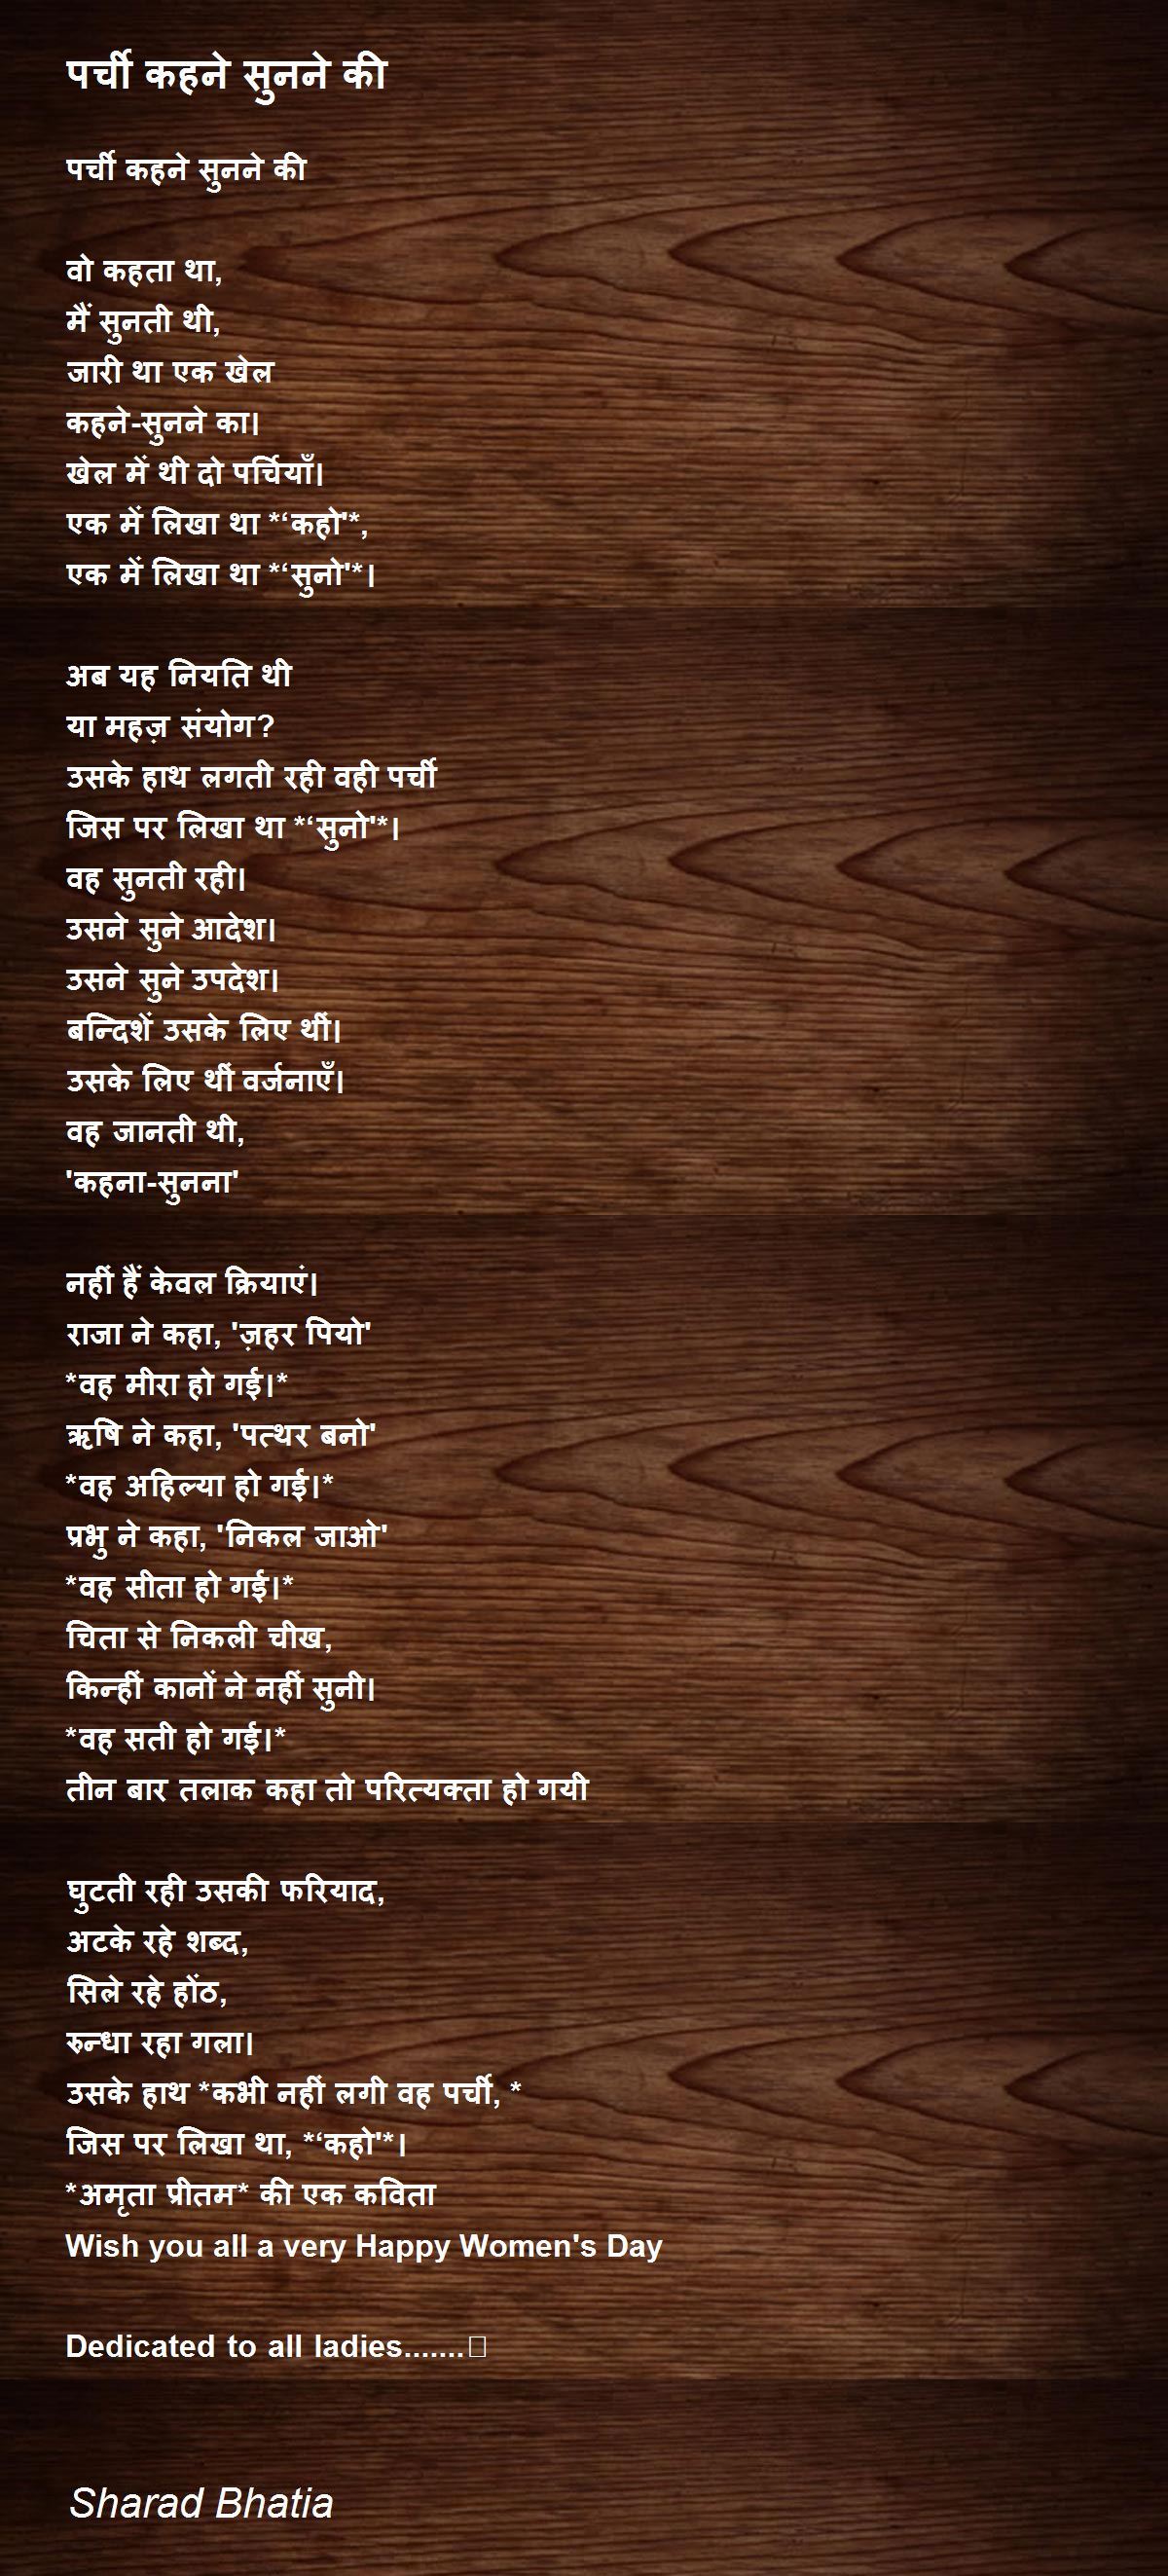 पर्ची कहने सुनने की
पर्ची कहने सुनने की
वो कहता था,
मैं सुनती थी,
जारी था एक खेल
कहने-सुनने का।
खेल में थी दो पर्चियाँ।
एक में लिखा था *‘कहो'*,
एक में लिखा था *‘सुनो'*।
अब यह नियति थी
या महज़ संयोग?
उसके हाथ लगती रही वही पर्ची
जिस पर लिखा था *‘सुनो'*।
वह सुनती रही।
उसने सुने आदेश।
उसने सुने उपदेश।
बन्दिशें उसके लिए थीं।
उसके लिए थीं वर्जनाएँ।
वह जानती थी,
'कहना-सुनना'
नहीं हैं केवल क्रियाएं।
राजा ने कहा, 'ज़हर पियो'
*वह मीरा हो गई।*
ऋषि ने कहा, 'पत्थर बनो'
*वह अहिल्या हो गई।*
प्रभु ने कहा, 'निकल जाओ'
*वह सीता हो गई।*
चिता से निकली चीख,
किन्हीं कानों ने नहीं सुनी।
*वह सती हो गई।*
तीन बार तलाक कहा तो परित्यक्ता हो गयी
घुटती रही उसकी फरियाद,
अटके रहे शब्द,
सिले रहे होंठ,
रुन्धा रहा गला।
उसके हाथ *कभी नहीं लगी वह पर्ची, *
जिस पर लिखा था, *‘कहो'*।
*अमृता प्रीतम* की एक कविता
Wish you all a very Happy Women's Day
Dedicated to all ladies.......
Sharad Bhatia